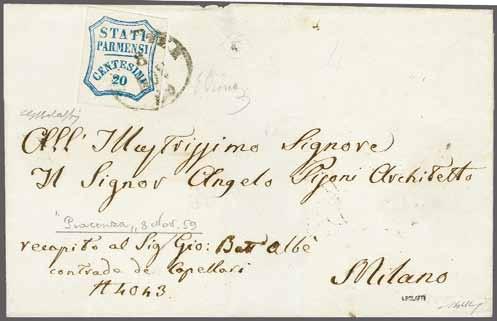 STATI
PARMENSI
CENTESIMI
20
All' Illustrissimo Signore
Il Signor Angelo Pizoni Architetto
"Piacenza" 8 Nov. 59
recapito al Sig Gio: Batt Albè
contrada de Capellari
Milano
# 4043.